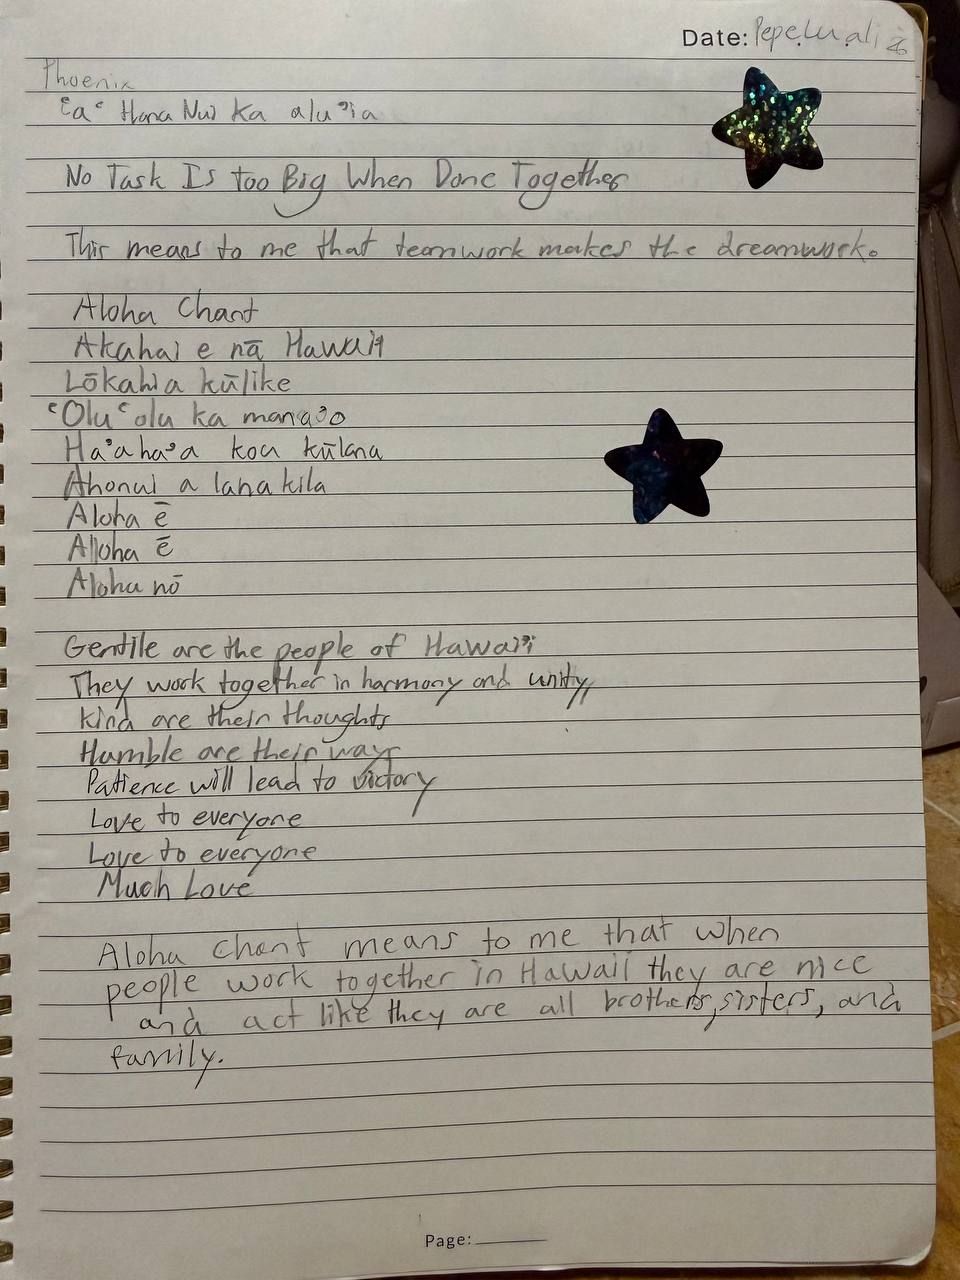 Date: Pepeluali 26
Phoenix
ʻaʻ Hana Nui Ka aluʼia
No Task Is too Big When Done Together
This means to me that teamwork makes the dreamwork.
Aloha Chant
Akahai e nā Hawaiʻi
Lōkahi a kūlike
ʻOluʻolu ka manaʼo
Haʼahaʼa kou kūlana
Ahonui a lanakila
Aloha ē
Alloha ē
Aloha nō
Gentile are the people of Hawaiʼi
They work together in harmony and unity,
kind are their thoughts
Humble are their ways
Patience will lead to victory
Love to everyone
Love to everyone
Much Love
Aloha chant means to me that when
people work together in Hawaii they are nice
and act like they are all brothers, sisters, and
family.
Page: